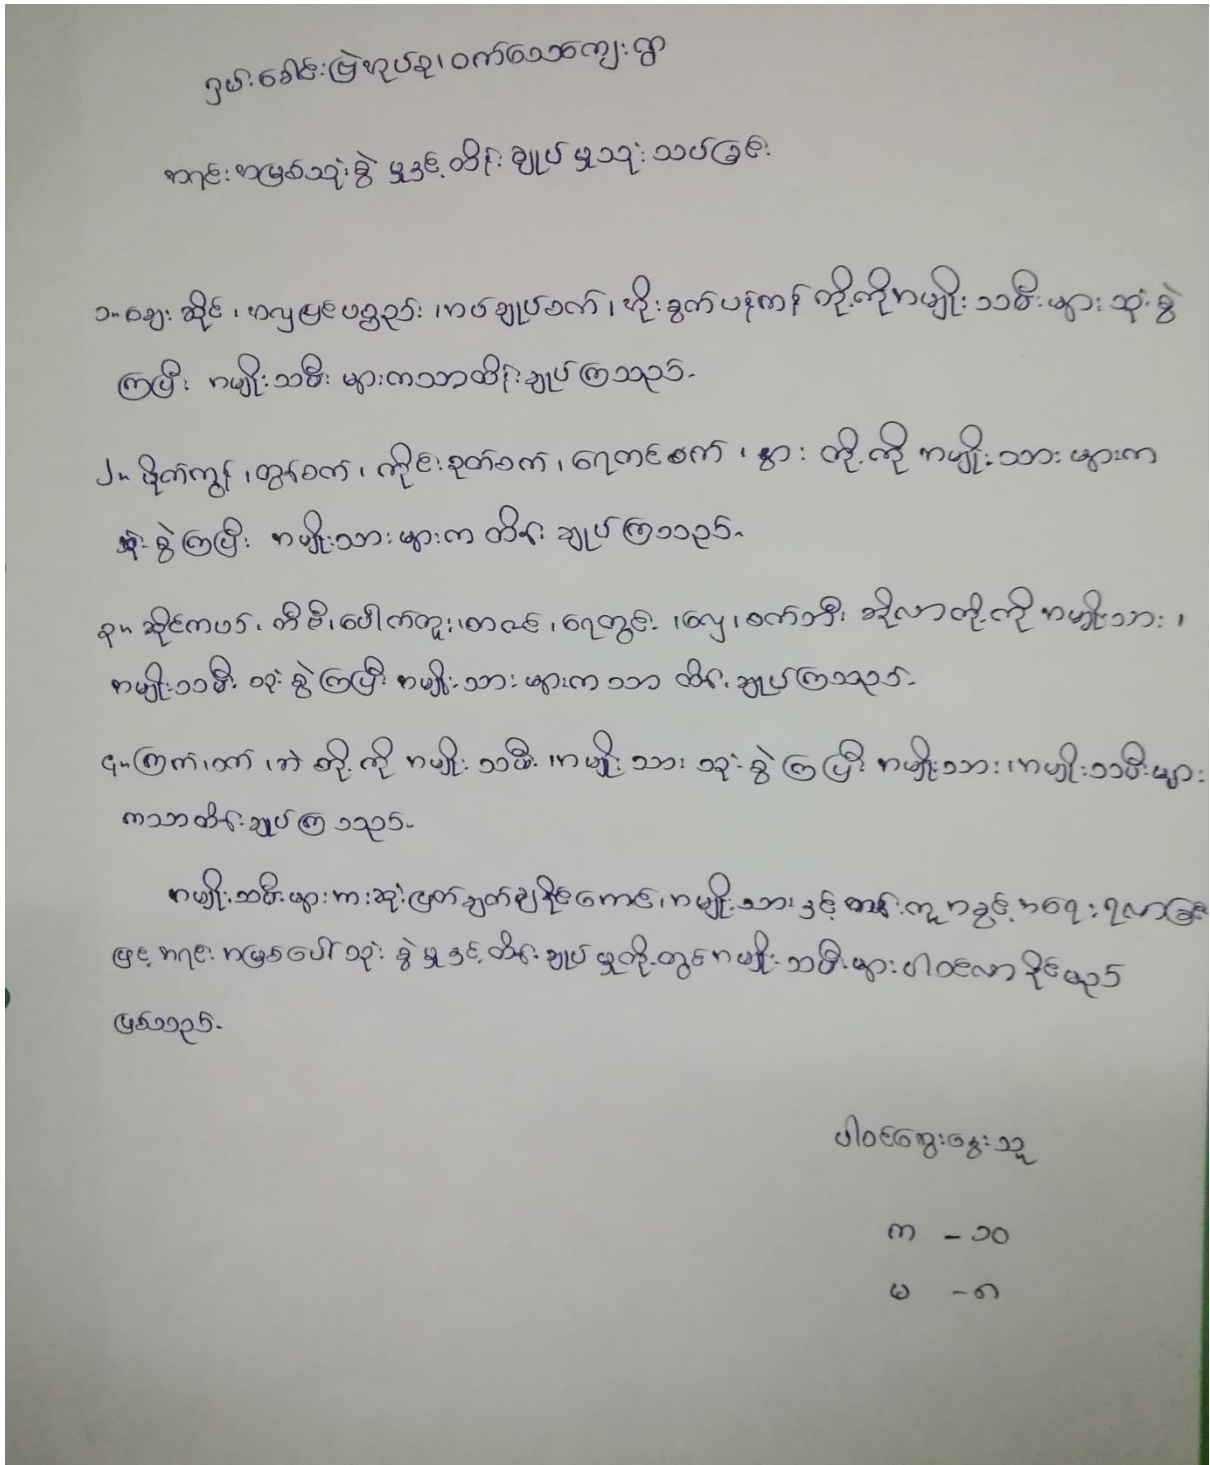 ဂွမ်းခေါင်းမြဲအုပ်စု၊ ဝက်သေကျေးရွာ
အရင်းအမြစ်သုံးစွဲမှုနှင့် ထိန်းချုပ်မှုသုံးသပ်ခြင်း
၁။ ဈေးဆိုင်၊ အလှပြင်ပစ္စည်း၊ အပ်ချုပ်စက်၊ အိုးခွက်ပန်ကန် တို့ကိုအမျိုးသမီးများ သုံးစွဲ
ကြပြီး အမျိုးသမီးများကသာထိန်းချုပ်ကြသည်။
၂။ ဖိုက်ကွန်၊ ထွန်စက်၊ ကိုင်းခုတ်စက်၊ ရေတင်စက်၊ နွား တို့ကို အမျိုးသားများက
သုံးစွဲကြပြီး အမျိုးသားများက ထိန်းချုပ်ကြသည်။
၃။ ဆိုင်ကယ်၊ တီဗီ၊ ပေါက်တူး၊ စာသင်၊ ရေတွင်း၊ လှေ၊ စက်ဘီး ဆိုလာတို့ကို အမျိုးသား၊
အမျိုးသမီး သုံးစွဲကြပြီး အမျိုးသားများက သာ ထိန်းချုပ်ကြသည်။
၄။ ကြက်၊ ဝက်၊ ဘဲ တို့ကို အမျိုးသမီး၊ အမျိုးသား သုံးစွဲကြပြီး အမျိုးသား၊ အမျိုးသမီးများ
ကသာထိန်းချုပ်ကြသည်။
အမျိုးသမီးများကဆုံးဖြတ်ချက်ချနိုင်ကောင်း၊ အမျိုးသားနှင့် တန်းတူအခွင့်အရေးရလာခြင်း
ဖြင့် အရင်းအမြစ်ပေါ်သုံးစွဲမှုနှင့် ထိန်းချုပ်မှုတို့တွင်အမျိုးသမီးများပါဝင်လာနိုင်မည်
ဖြစ်သည်။
ပါဝင်ဆွေးနွေးသူ
က - ၁၀
မ - ၈